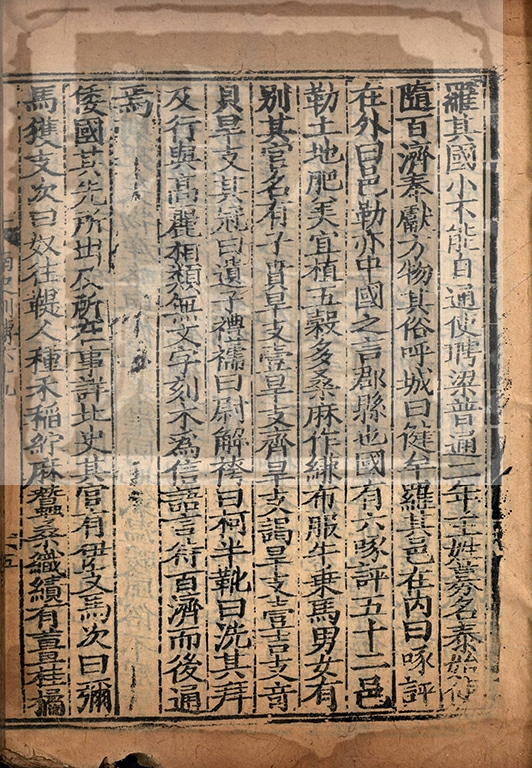 羅其國小不能自通使聘梁普通二年王姓募名泰始使
隨百濟奉獻方物其俗呼城曰健牟羅其邑在內曰啄評
在外曰邑勒亦中國之言郡縣也國有六啄評五十二邑
勒土地肥美宜植五穀多桑麻作縑布服牛乘馬男女有
別其官名有子賁旱支壹旱支齊旱支謁旱支壹吉支奇
貝旱支其冠曰遺子禮襦曰尉解袴曰柯半靴曰洗其拜
及行與高麗相類無文字刻木為信語言待百濟而後通
焉
倭國其先所出及所在事詳北史其官有伊支馬次曰彌
馬獲支次曰奴往鞮人種禾稻紵麻蠶桑織績有薑桂橘